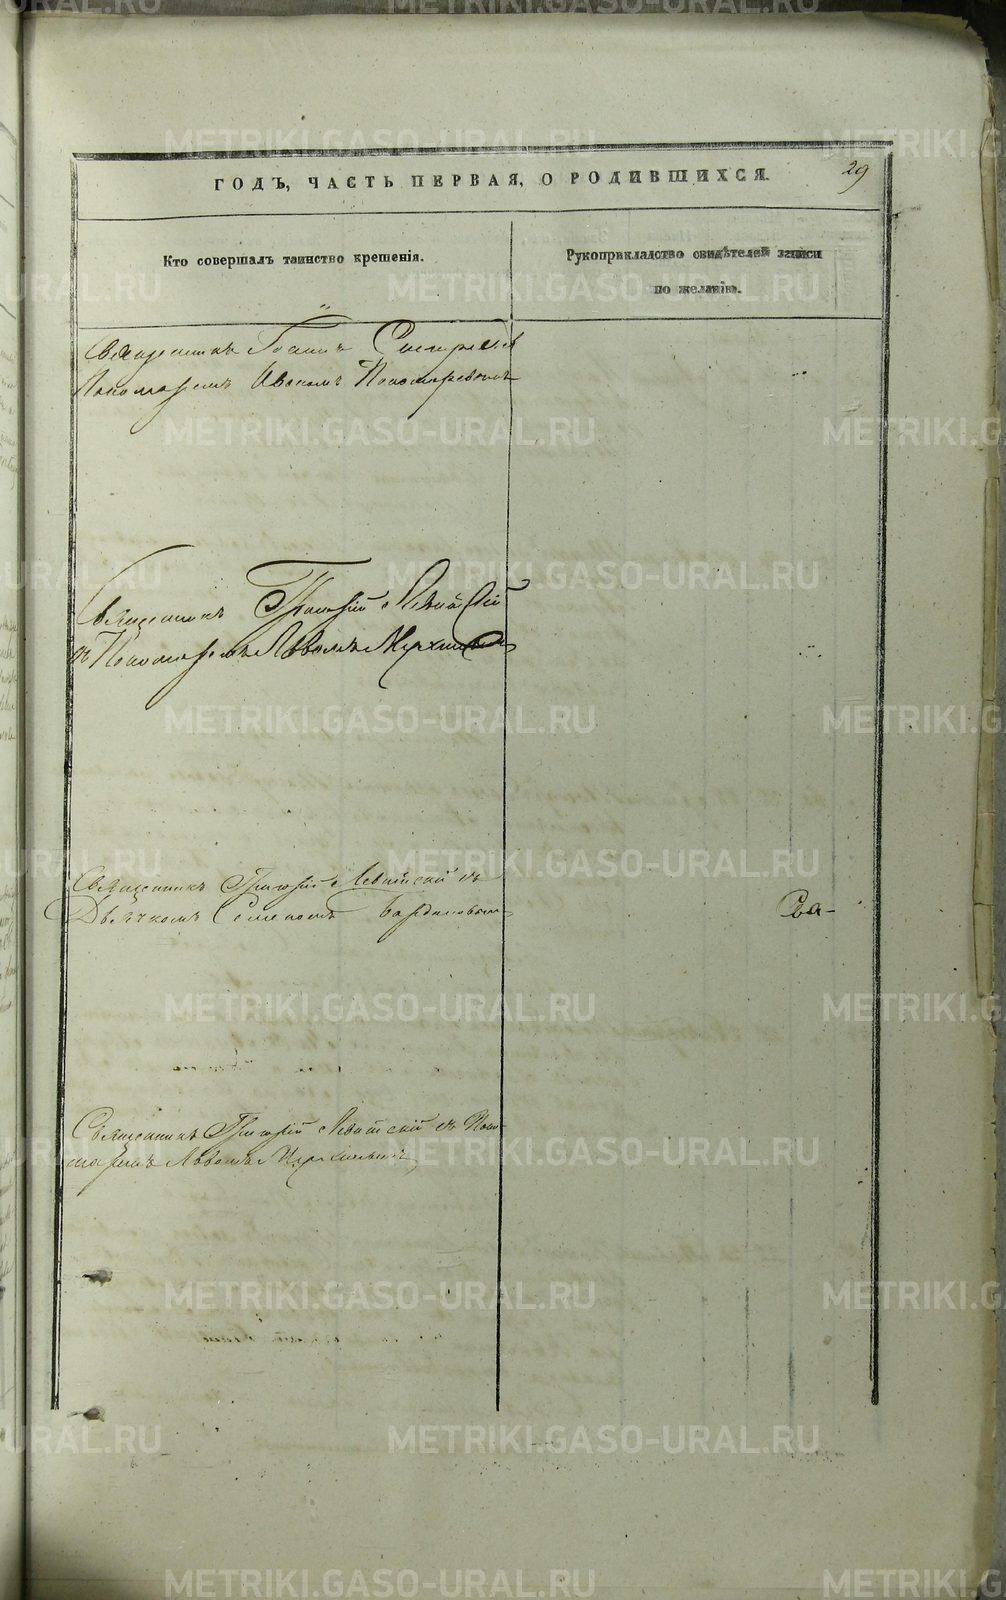 29
ГОДЪ, ЧАСТЬ ПЕРВАЯ, О РОДИВШИХСЯ.
Кто совершалъ таинство крещенія.
Рукоприкладство свидѣтелей записи
по желанію.
Священникъ Іоаннъ
Пономаремъ Иваномъ Пономаревымъ
Священникъ Григорій Левитскій
съ Пономаремъ Львомъ
Священникъ Григорій Левитскій съ
Дьячкомъ Семеномъ
Сва-
Священникъ Григорій Левитскій съ Поно-
маремъ Львомъ
METRIKI.GASO-URAL.RU